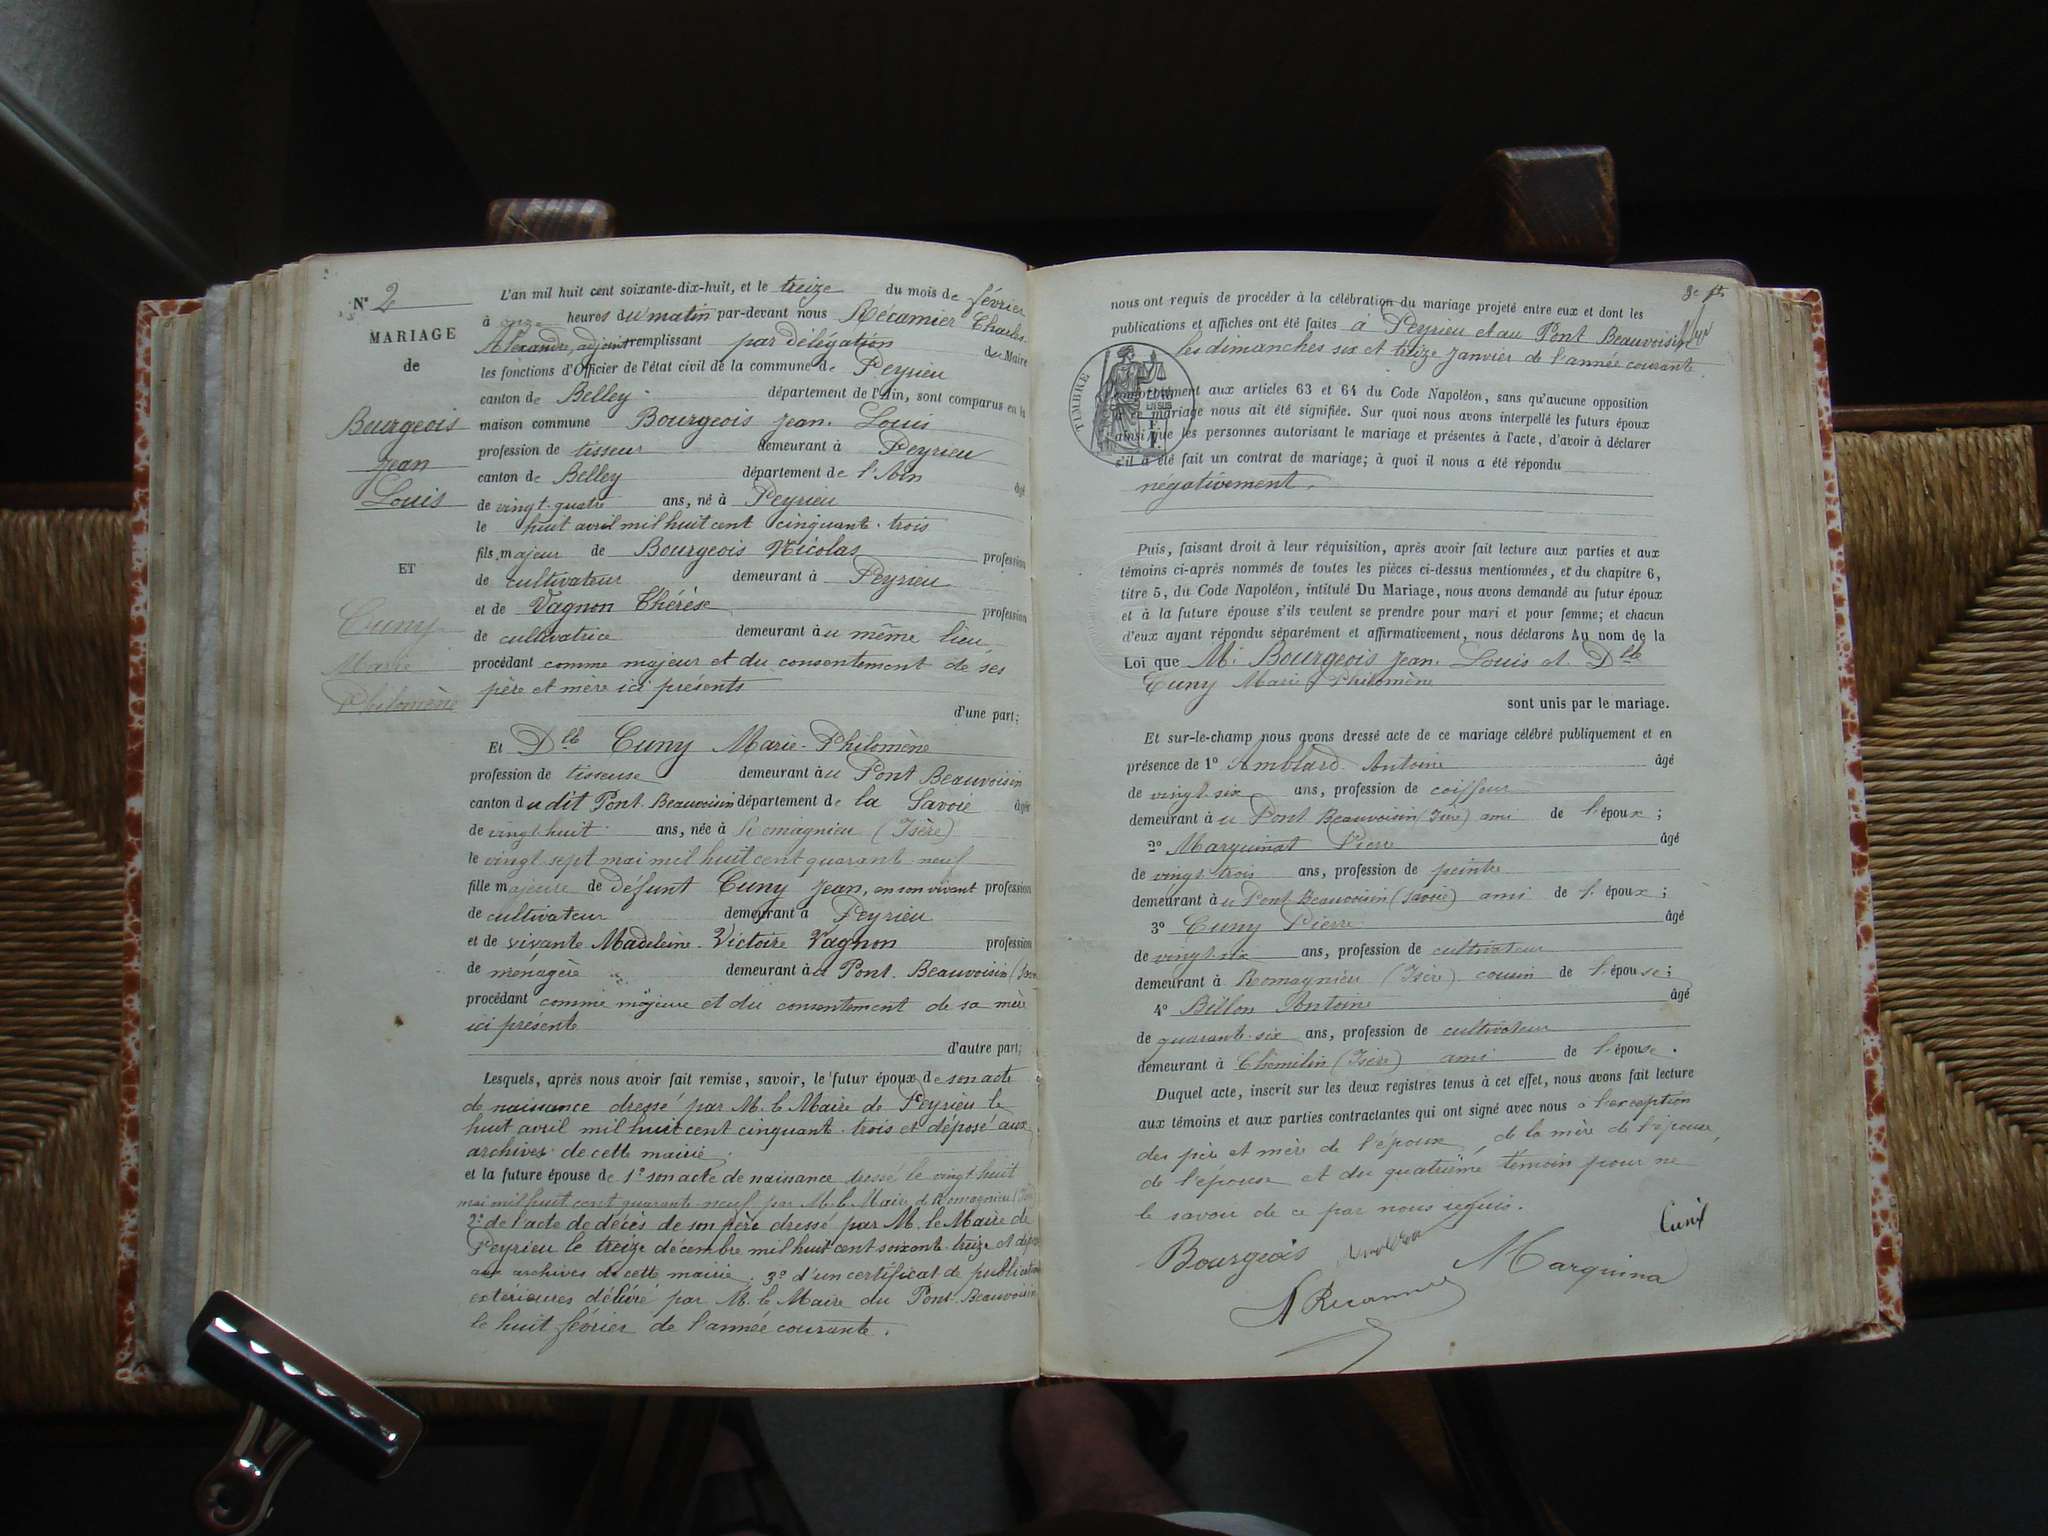 N° 2
MARIAGE
de
Bourgeois
Jean
Louis
ET
Cuny
Marie
Philomène
L'an mil huit cent soixante-dix-huit, et le treize du mois de février
à onze heures du matin par-devant nous Récamier Charles
Alexandre, adjoint remplissant par délégation du Maire
les fonctions d'Officier de l'état civil de la commune de Peyrieu
canton de Belley département de l'Ain, sont comparus en la
maison commune Bourgeois Jean. Louis
profession de tisseur demeurant à Peyrieu
canton de Belley département de l'Ain âgé
de vingt-quatre ans, né à Peyrieu
le huit avril mil huit cent cinquante-trois
fils majeur de Bourgeois Nicolas profession
de cultivateur demeurant à Peyrieu
et de Vagnon Thérèse profession
de cultivatrice demeurant au même lieu
procédant comme majeur et du consentement de ses
père et mère ici présents
d'une part;
Et Dlle Cuny Marie-Philomène
profession de tisseuse demeurant au Pont Beauvoisin
canton dudit Pont-Beauvoisin département de la Savoie âgée
de vingt-huit ans, née à Romagnieu (Isère)
le vingt-sept mai mil huit cent quarante-neuf
fille majeure de défunt Cuny Jean, en son vivant profession
de cultivateur demeurant à Peyrieu
et de vivante Madeleine-Victoire Vagnon profession
de ménagère demeurant au Pont-Beauvoisin (Isère
procédant comme majeure et du consentement de sa mère
ici présente
d'autre part;
Lesquels, après nous avoir fait remise, savoir, le futur époux de son acte
de naissance dressé par M. le Maire de Peyrieu le
huit avril mil huit cent cinquante-trois et déposé aux
archives de cette mairie;
et la future épouse de 1° son acte de naissance dressé le vingt-huit
mai mil huit cent quarante-neuf par M. le Maire de Romagnieu (Isère)
2° de l'acte de décès de son père dressé par M. le Maire de
Peyrieu le treize décembre mil huit cent soixante-treize et déposé
aux archives de cette mairie; 3° d'un certificat de publications
extérieures délivré par M. le Maire du Pont-Beauvoisin
le huit février de l'année courante.
3e ft
nous ont requis de procéder à la célébration du mariage projeté entre eux et dont les
publications et affiches ont été faites à Peyrieu et au Pont Beauvoisin
les dimanches six et treize Janvier de l'année courante
TIMBRE
conformément aux articles 63 et 64 du Code Napoléon, sans qu'aucune opposition
à ce mariage nous ait été signifiée. Sur quoi nous avons interpellé les futurs époux
ainsi que les personnes autorisant le mariage et présentes à l'acte, d'avoir à déclarer
s'il a été fait un contrat de mariage; à quoi il nous a été répondu
négativement.
Puis, faisant droit à leur réquisition, après avoir fait lecture aux parties et aux
témoins ci-après nommés de toutes les pièces ci-dessus mentionnées, et du chapitre 6,
titre 5, du Code Napoléon, intitulé Du Mariage, nous avons demandé au futur époux
et à la future épouse s'ils veulent se prendre pour mari et pour femme; et chacun
d'eux ayant répondu séparément et affirmativement, nous déclarons Au nom de la
Loi que M. Bourgeois Jean. Louis et Dlle
Cuny Marie Philomène
sont unis par le mariage.
Et sur-le-champ nous avons dressé acte de ce mariage célébré publiquement et en
présence de 1° Amblard Antoine âgé
de vingt-six ans, profession de coiffeur
demeurant au Pont Beauvoisin (Isère) ami de l'époux;
2° Marquinat Pierre âgé
de vingt-trois ans, profession de peintre
demeurant au Pont Beauvoisin (Savoie) ami de l'époux;
3° Cuny Pierre âgé
de vingt-six ans, profession de cultivateur
demeurant à Romagnieu (Isère) cousin de l'épouse;
4° Billon Antoine âgé
de quarante-six ans, profession de cultivateur
demeurant à Chimilin (Isère) ami de l'épouse.
Duquel acte, inscrit sur les deux registres tenus à cet effet, nous avons fait lecture
aux témoins et aux parties contractantes qui ont signé avec nous à l'exception
des père et mère de l'époux, de la mère de l'épouse,
de l'épouse et du quatrième témoin pour ne
le savoir de ce par nous requis.
Bourgeois Marquina Cuni
A Récamier